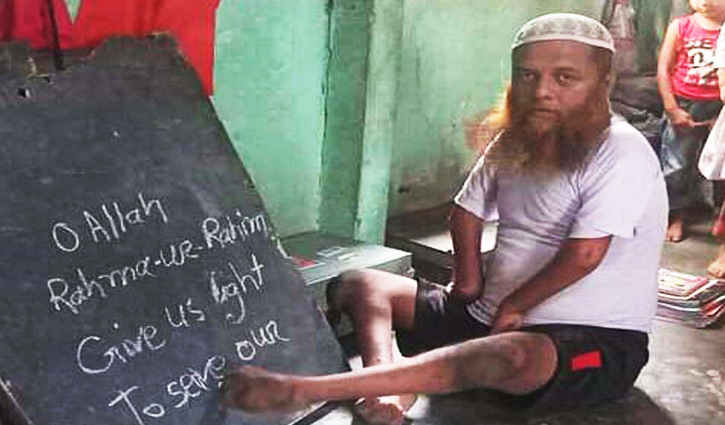 O Allah
Rahma-ur-Rahim
Give us light
To serve our